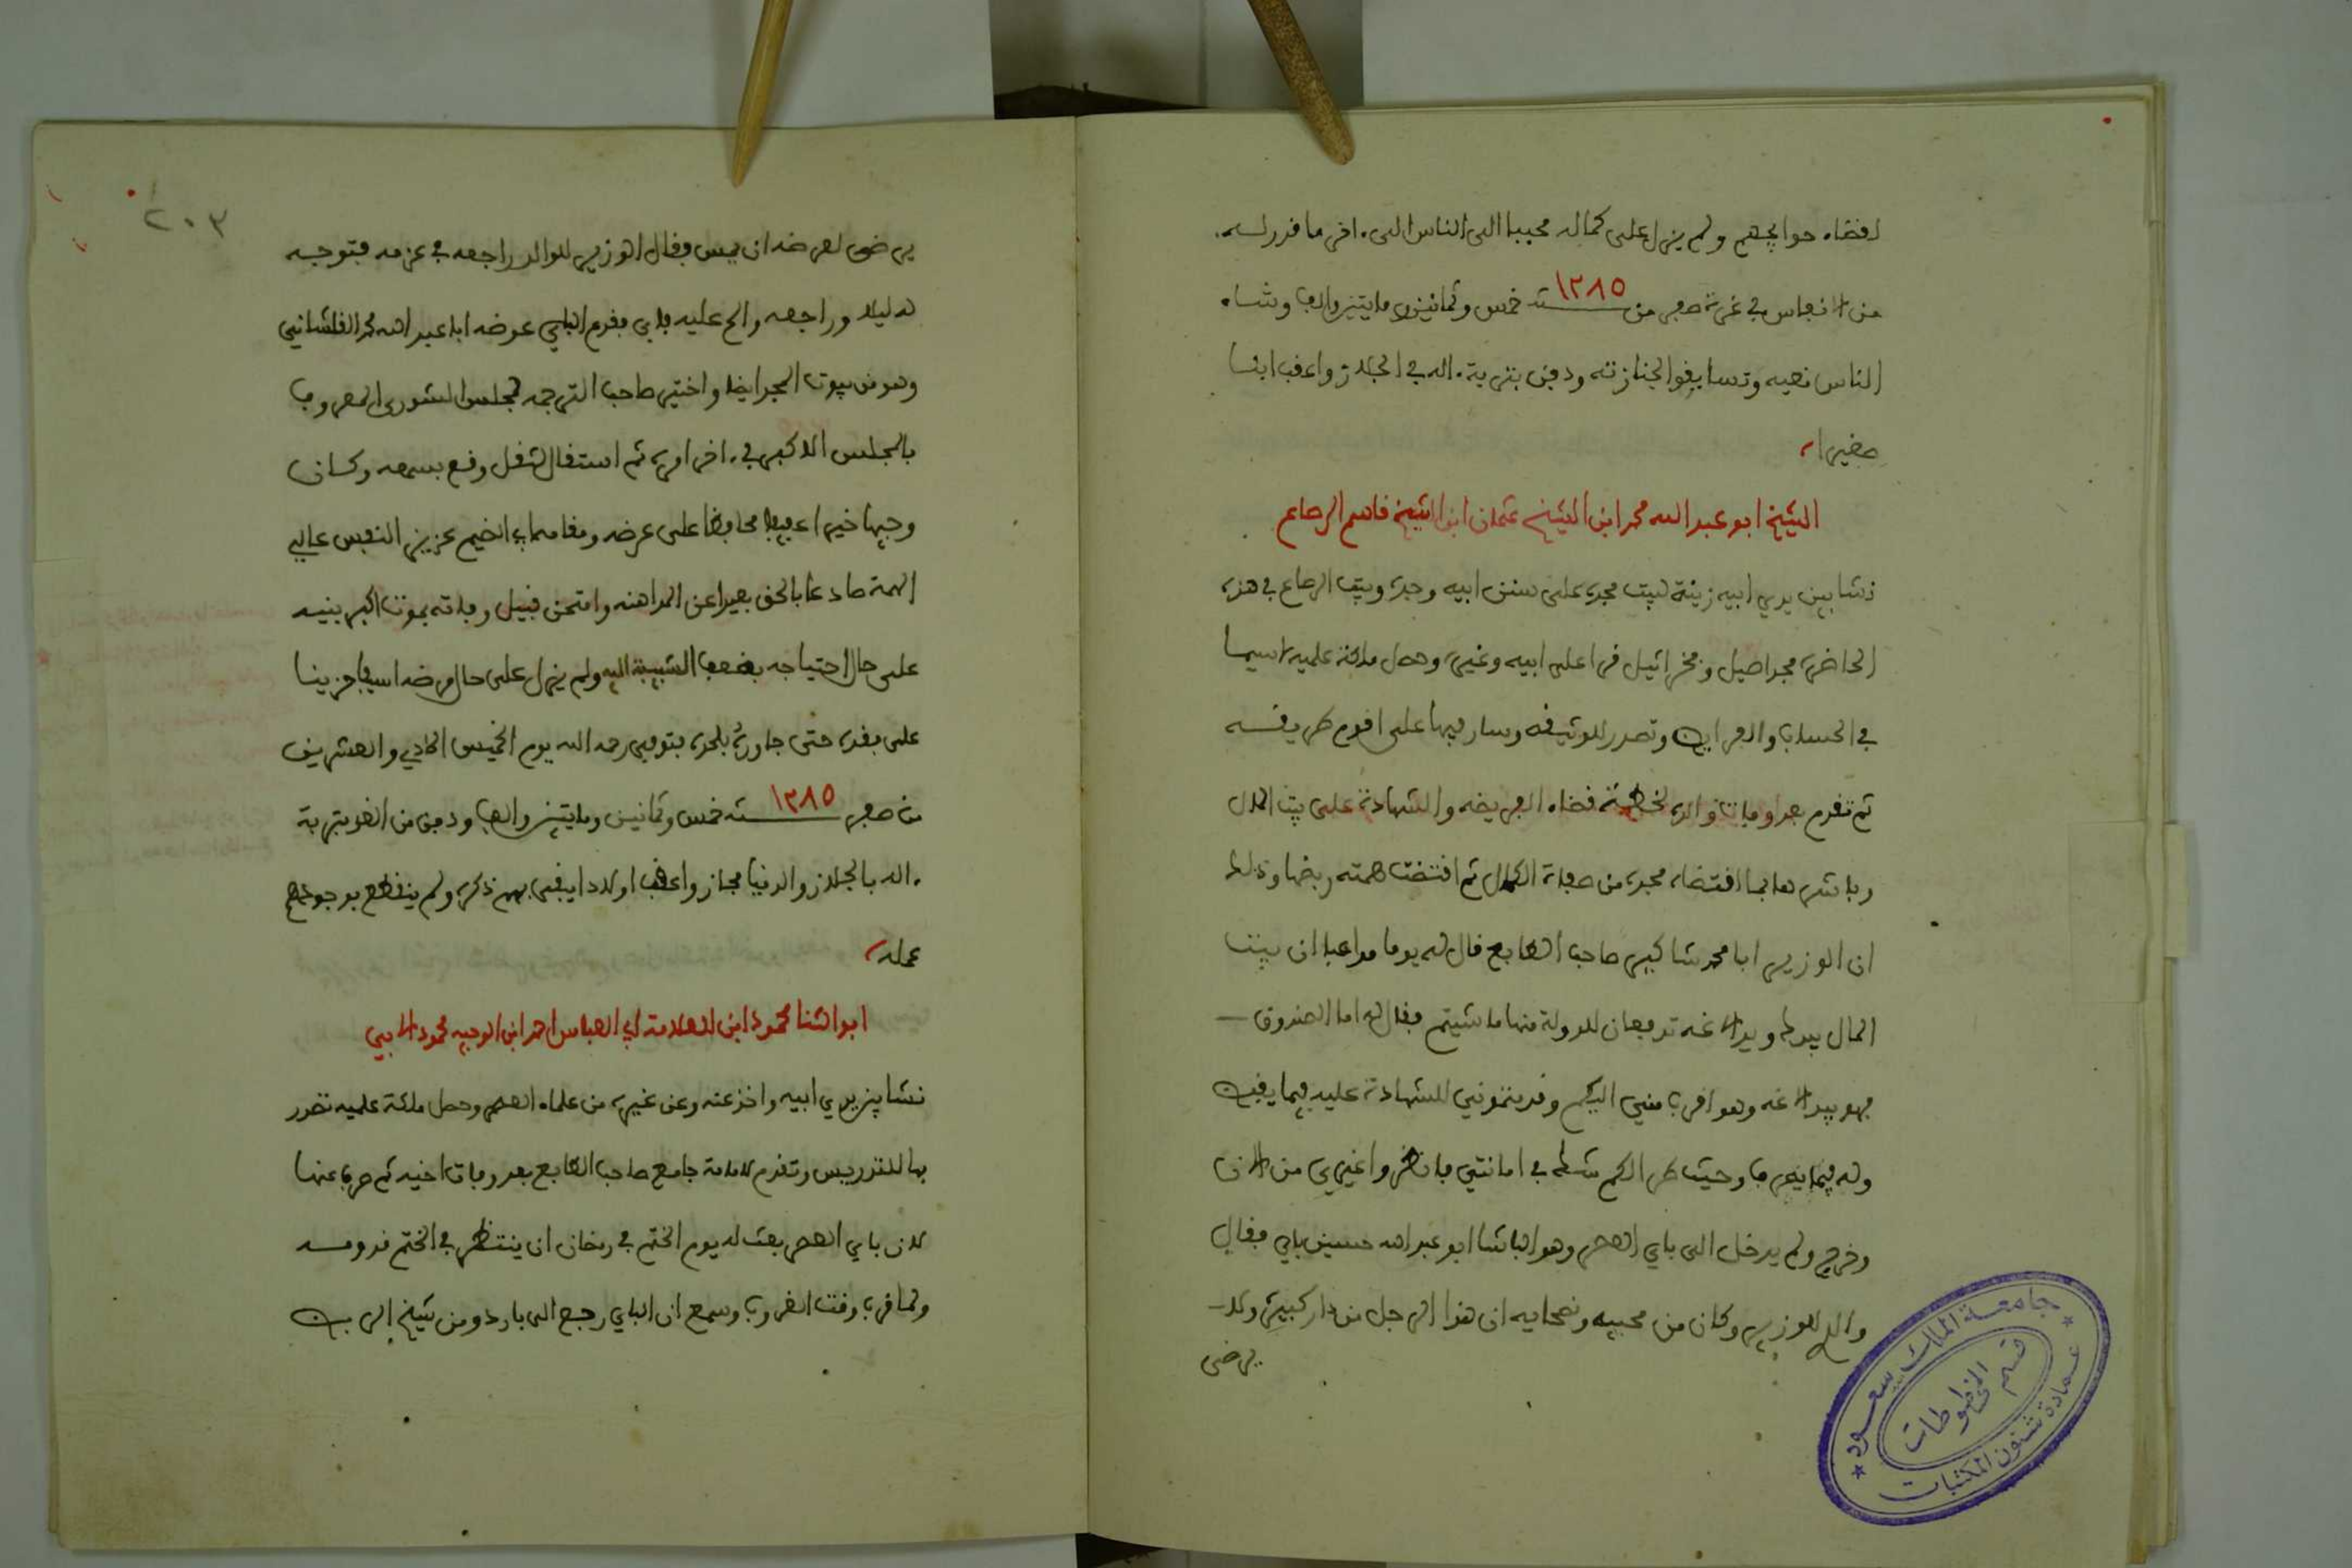 لقضاء حوائجهم ولم يزل على كماله محببا الى الناس الى ءاخر ما قدر له
من الانفاس في غرة صفر من سنة ١٢٨٥ خمس وثمانين ومايتين والف وشاء
الناس نعيه وتسابقوا لجنازته ودفن بتربة ءاله في الجلاز واعقب ابنا
صغيرا
الشيخ ابو عبد الله محمد ابن الشيخ عثمان ابن الشيخ قاسم الرصاع
نشا بين يدي ابيه زينة لبيت مجده على سنن ابيه وجده وبيت الرصاع في هذه
الحاضرة مجد اصيل وفخر اثيل قرا على ابيه وغيره وحصل ملكة علميه لاسيما
في الحساب والفرايض وتصدر للوثيقه وسار فيها على اقوم طريقه
ثم تقدم بعد وفاة والده لخطة قضاء الفريضه والشهادة على بيت المال
وباشرهما بما اقتضاه مجده من صفاة الكمال ثم اقتضت همته رفضها وذلك
ان الوزير ابا محمد شاكير صاحب الطابع قال له يوما مداعبا ان بيت
المال بيدك ويد الاغه تدفعان للدولة منها ما شيتم فقال له اما الصندوق
فهو بيد الاغه وهو اقرب مني اليكم وقدمتموني للشهادة عليه فيما يقبض
وله فيما يصرف وحيث طرا لكم شك في امانتي فانظروا غيري من الان
وخرج ولم يدخل الى باي العصر وهو الباشا ابو عبد الله حسين باي فقال
والدي للوزير وكان من محبيه ونصحايه ان هذا الرجل من دار كبيرة ولا
يرضى
٢٠٣
يرضى لعرضه ان يمس فقال الوزير للوالد راجعه في عزمه فتوجه
له ليلا وراجعه والح عليه فابى فقدم الباي عوضه ابا عبد الله محمد القلشاني
وهو من بيوت المجد ايضا واختير صاحب الترجمه لمجلس الشورى المعروف
بالمجلس الاكبر في ءاخر امره ثم استقال لثقل وقع بسمعه وكان
وجيها خيرا عفيفا محافظا على عرضه ومقامه ابي الضيم عزيز النفس عالي
الهمة صادعا بالحق بعيدا عن المداهنه وامتحن قبيل وفاته بموت اكبر بنيه
على حال احتياجه بضعف الشيبة اليه ولم يزل على حال مرضه اسيفا حزينا
على فقده حتى جاوره بلحده فتوفي رحمه الله يوم الخميس الحادي والعشرين
من صفر سنة ١٢٨٥ خمس وثمانين ومايتين والف ودفن من الغد بتربة
ءاله بالجلاز والدنيا مجاز واعقب اولادا يبقى بهم ذكره ولم ينقطع بوجودهم
عمله
ابو الثنا محمود ابن العلامة ابي العباس احمد ابن الوجيه محمود الابي
نشا بين يدي ابيه واخذ عنه وعن غيره من علماء العصر وحصل ملكة علميه تصدر
بها للتدريس وتقدم لامامة جامع صاحب الطابع بعد وفاة اخيه ثم صرف عنها
لان باي العصر بعث له يوم الختم في رمضان ان ينتظر في الختم قدومه
ولما قرب وقت الغروب وسمع ان الباي رجع الى باردو من شيخ الربض
جامعة الملك سعود
قسم المخطوطات
عمادة شئون المكتبات